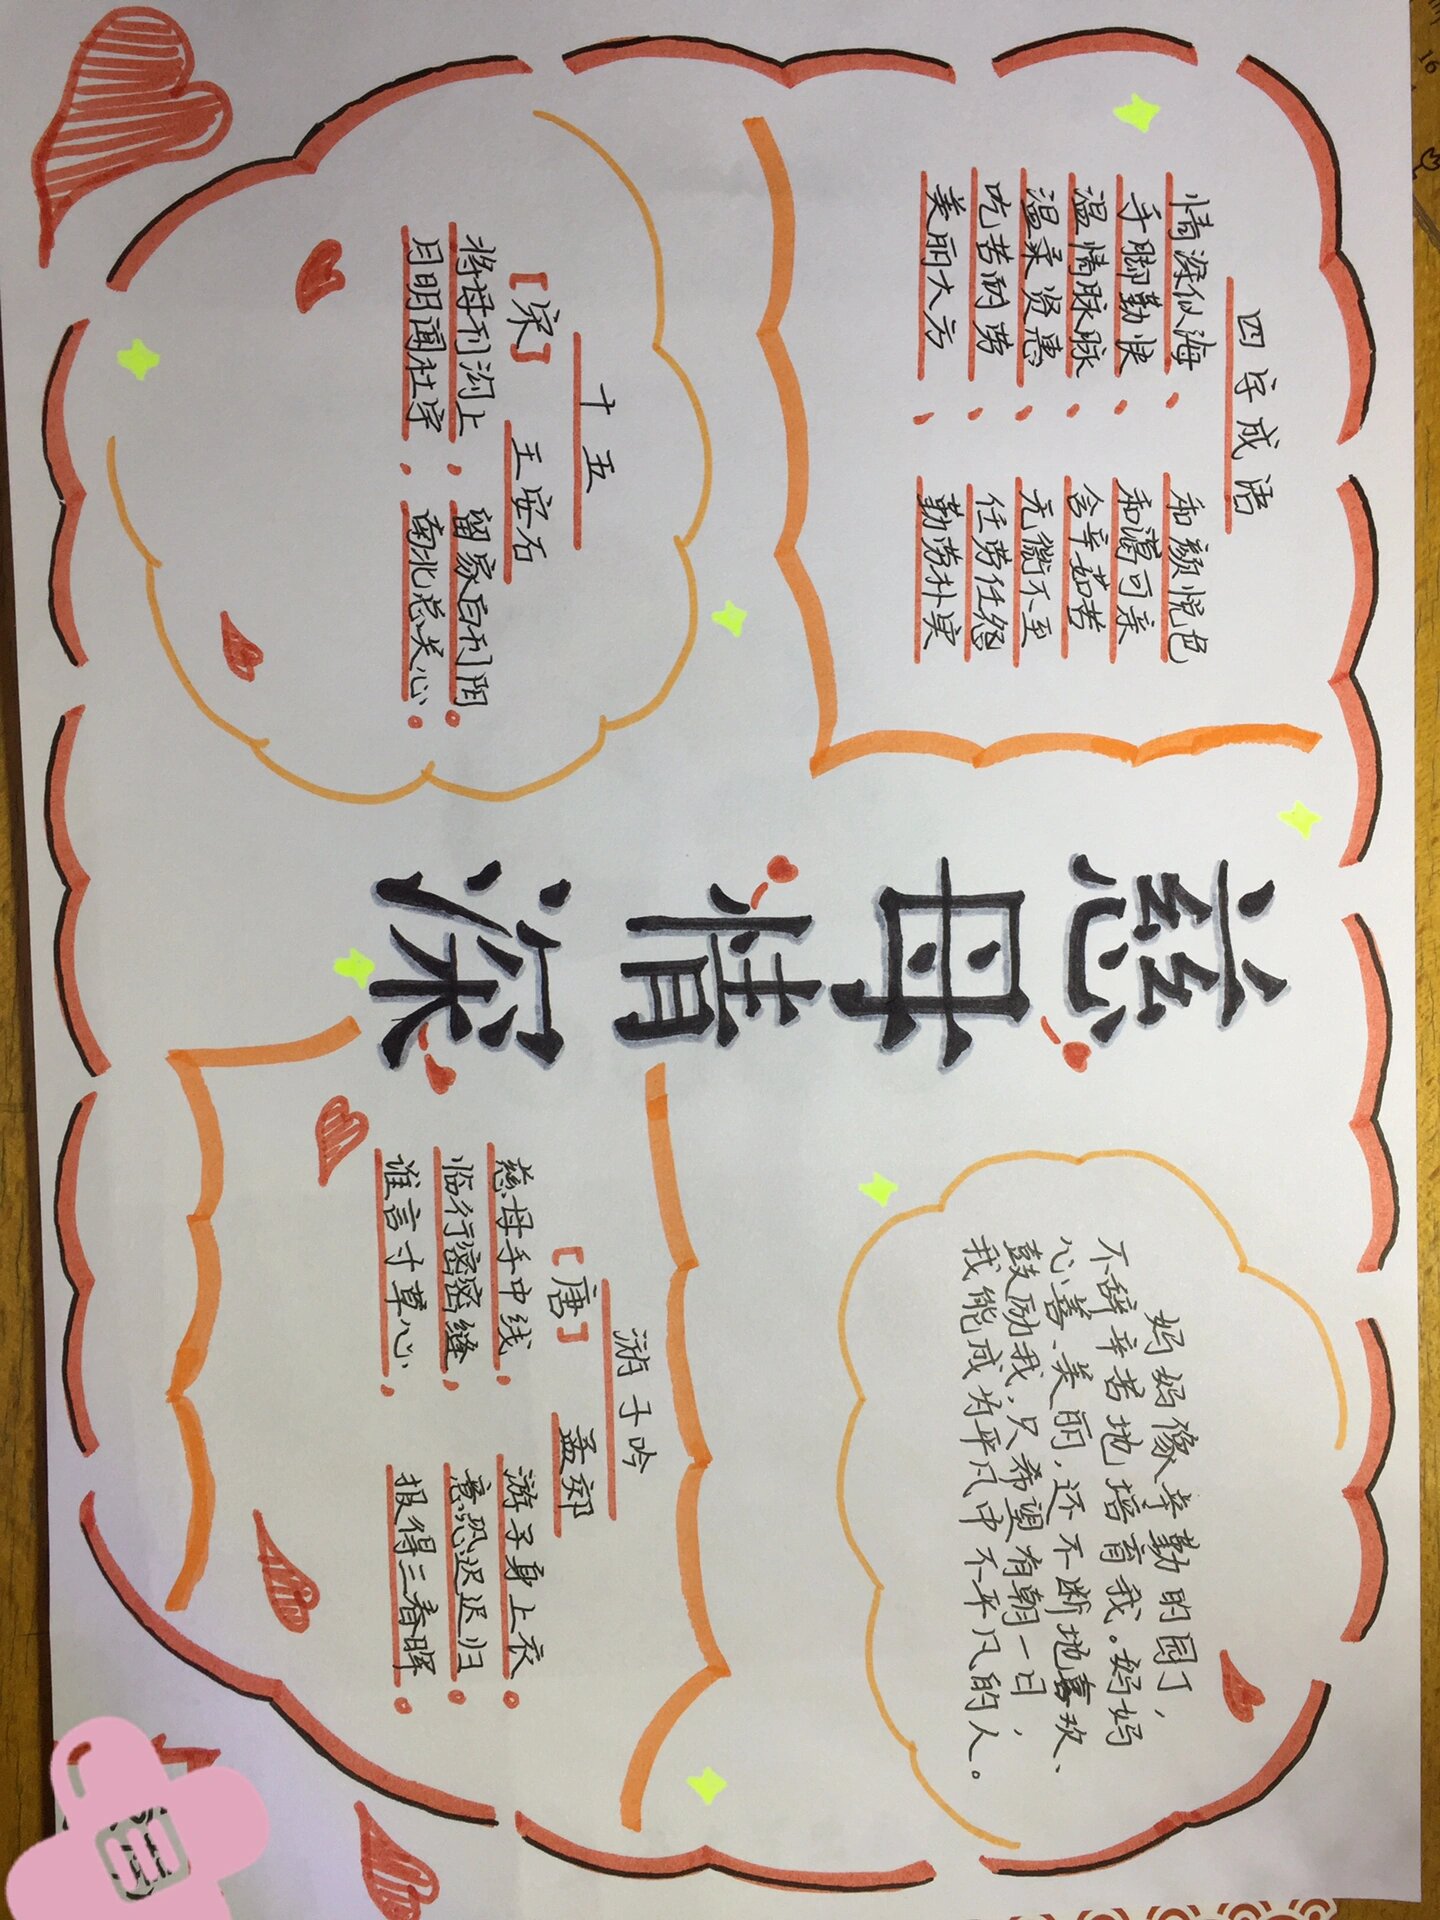 慈母情深
四字成语
情深似海、和颜悦色
手脚勤快、和蔼可亲
温情脉脉、含辛茹苦
温柔贤惠、无微不至
吃苦耐劳、任劳任怨
美丽大方、勤劳朴实
十五
[宋] 王安石
将母邗沟上,留家白邗阴。
月明闻杜宇,南北总关心。
妈妈像辛勤的园丁,
不辞辛苦地培育我。妈妈
心善、美丽,还不断地喜欢、
鼓励我,只希望有朝一日,
我能成为平凡中不平凡的人。
游子吟
[唐] 孟郊
慈母手中线,游子身上衣。
临行密密缝,意恐迟迟归。
谁言寸草心,报得三春晖。
16